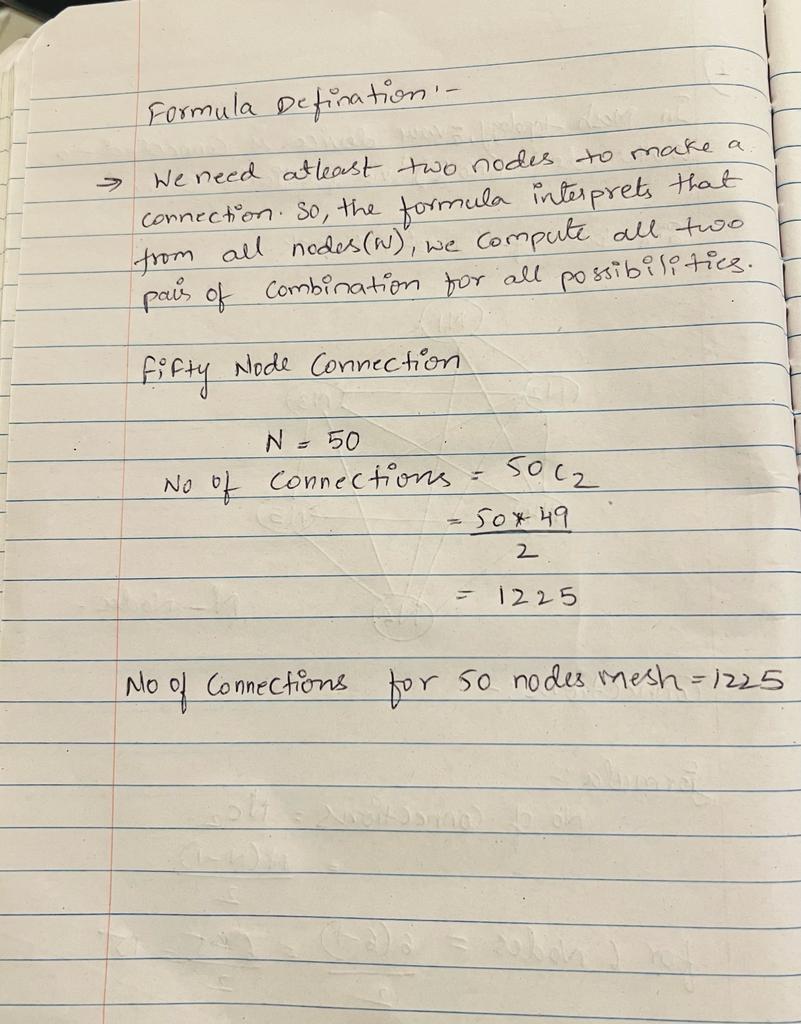 Formula Defination:-
→ We need atleast two nodes to make a
connection. So, the formula interprets that
from all nodes(N), we compute all two
pais of combination for all possibilities.
Fifty Node Connection
N = 50
No of Connections = 50C2
= 50*49
2
= 1225
No of Connections for 50 nodes mesh = 1225